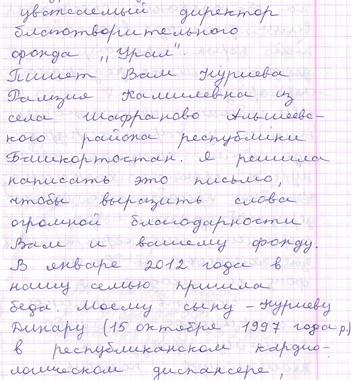 уважаемый директор
благотворительного
фонда „Урал".
Пишет Вам Куриева
Рамзия Камилевна из
села Шафраново Альшеевс-
кого района республики
Башкортостан. Я решила
написать это письмо,
чтобы выразить слова
огромной благодарности
Вам и вашему фонду.
В январе 2012 года в
нашу семью пришла
беда. Моему сыну - Куриеву
(15 октября 1997 года р.)
в республиканском кардио-
логическом диспансере,